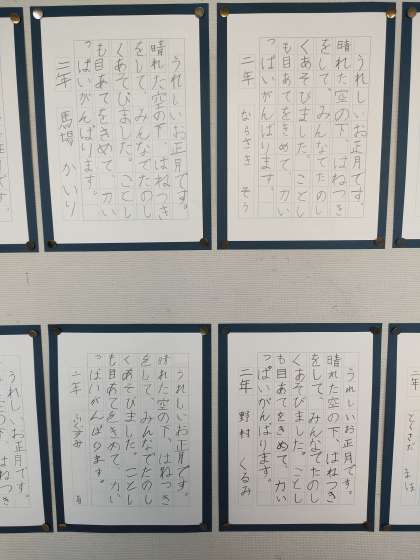 うれしいお正月です。
晴れた空の下、はねつき
をして、みんなでたのし
くあそびました。ことし
も目あてをきめて、力い
っぱいがんばります。
二年 ならさき そう
うれしいお正月です。
晴れた空の下、はねつき
をして、みんなでたのし
くあそびました。ことし
も目あてをきめて、力い
っぱいがんばります。
二年 馬場 かいり
二年
うれしいお正月です。
晴れた空の下、はねつき
をして、みんなでたのし
くあそびました。ことし
も目あてをきめて、力い
っぱいがんばります。
二年 野村 くるみ
うれしいお正月です。
晴れた空の下、はねつき
をして、みんなでたのし
くあそびました。ことし
も目あてをきめて、力い
っぱいがんばります。
二年
うれしいお正月です。